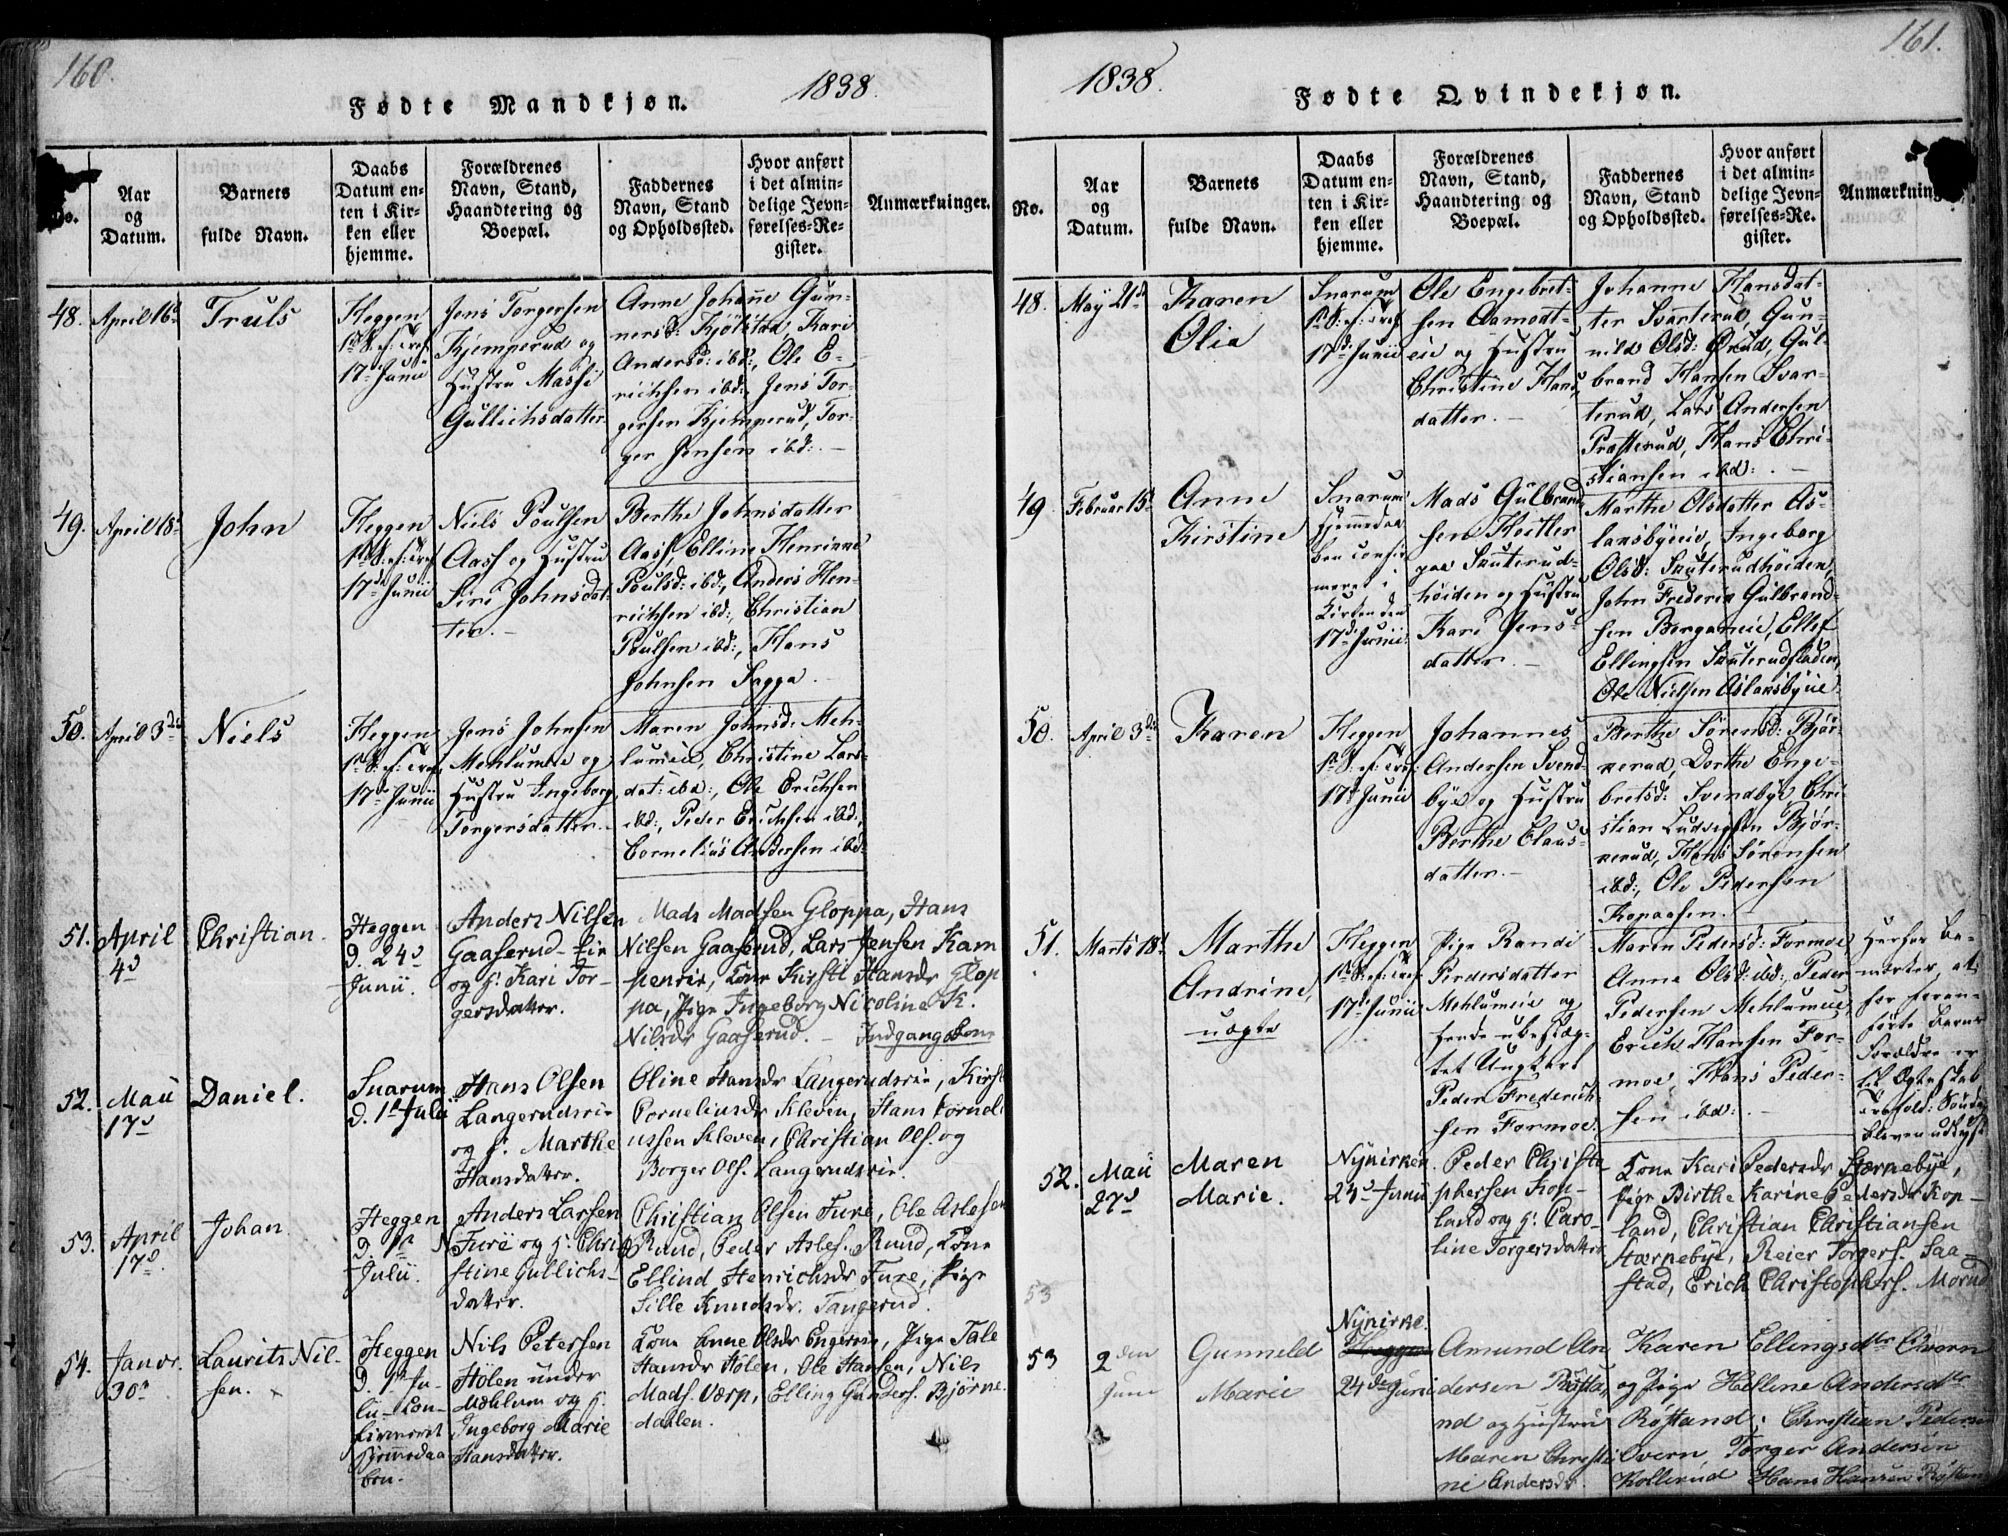 160.
Fødte Mandkjøn.
1838.
No.
Aar
og
Datum.
Barnets
fulde Navn.
Daabs
Datum en-
ten i Kir-
ken eller
hjemme.
Forældrenes
Navn, Stand,
Haandtering og
Boepæl.
Faddernes
Navn, Stand
og Opholdssted.
Hvor anført
i det almin-
delige Jevn-
førelses-Re-
gister.
Anmærkninger.
48.
April 16d
Truls
Heggen
17de Junii
Jens Torgersen
Kjemperud og
Hustru Massi
Gullichsdatter
Anne Johanne Gun-
nersd: Kari
Andersd: ibd:, Ole E-
richsen ibd:, Jens Tor-
gersen Kjemperud, Tor-
ger Jensen ibd: -
49.
April 18d
John
Heggen
17de Junii
Niels Poulsen
Aass og Hustru
Siri Johnsdat-
ter. -
Berthe Johnsdatter
Aass, Elline Henrinne
Poulsd: ibd:, Anders Hen-
richsen ibd:, Christian
Poulsen ibd:, Hans
Johnsen Sagga.
50.
April 3de
Niels
Heggen
17de Junii
Jens Johnsen
Mehlumeie og
Hustru Ingeborg
Torgersdatter. -
Maren Johnsd: Meh-
lumeie, Christine Lars-
dat: ibd:, Ole Erichsen
ibd:, Peder Erichsen ibd:,
Cornelius Andersen ibd:
51.
April
4d
Christian.
Heggen
d. 24d
Junii.
Anders Nilsen
Gaaserud-eie
og H. Kari Tor-
gersdatter.
Mads Madsen Gloppa, Hans
Nilsen Gaaserud, Lars Jensen Kam
peneie, Kone Kirsti Hansdr Glop
pa, Pige Ingeborg Nicoline K.
Nilsdr Gaaserud. - Indgangskone
52.
Maii
17d
Daniel.
Snarum
d. 1ste Julii
Hans Olsen
Langerudseie
og H. Marthe
Hansdatter.
Oline Hansdr Langerudseie, Kirst
Corneliusdr Kleven, Hans Corneli
ussen Kleven, Christian Ols. og
Borger Ols. Langerudseie.
53.
April
17d
Johan
Heggen
Julii.
Anders Larsen
Fure og H. Chri
stine Gullichs-
datter.
Christian Olsen Fure, Ole Aslesen
Ruud, Peder Asles. Ruud, Kone
Ellind Henrichsdr Fure, Pige
Sille Knudsdr. Tangerud.
54.
Janvr.
30te
Laurits Nil-
sen.
Heggen
d. 1ste Ju-
lii - Con-
firmeret
Hjemmedaa
ben.
Nils Petersen
Holen under
Mæhlum og H.
Ingeborg Marie
Hansdatter.
Kone Anne Olsdr Engereie, Pige Tale
Hansdr Holen, Ole Hansen, Nils
Mads. Værp, Elling Gunders. Bjørne
dahlen.
161.
1838.
Fødte Qvindekjøn.
No.
Aar
og
Datum.
Barnets
fulde Navn.
Daabs
Datum en-
ten i Kir-
ken eller
hjemme.
Forældrenes
Navn, Stand,
Haandtering og
Boepæl.
Faddernes
Navn, Stand
og Opholdssted.
Hvor anført
i det almin-
delige Jevn-
førelses-Re-
gister.
Anmærkning
48.
May 21de
Karen
Olia
Snarum
17de Junii
Ole Engebret-
sen Aamodt-
eie og Hustru
Christine Hans
datter. -
Johanne Hansdat-
ter Svarterud, Gun-
nild Olsd: Ørud, Gul-
brand Hansen Svar-
terud, Lars Andersen
Præsterud, Hans Chri-
stiansen ibd: . -
49.
Februar 15d
Anne
Kirstine
Snarum
Hjemmedaa-
ben confir-
meret i
Kirken den
17de Junii
Mads Gulbrand
sen
paa Sauterud-
høiden og Hustru
Kari Jens-
datter. -
Marthe Olsdatter As-
lansbyeie, Ingeborg
Olsd: Sauterudhøiden,
John Frederik Gulbrand-
sen Berganeie, Ellef
Ellingsen
Ole Nielsen Aslansbyeie.
50.
April 3de
Karen
Heggen
17de Junii
Johannes
Andersen Svend-
bye og Hustru
Berthe Claus-
datter. -
Berthe Sørensd: Bjør-
nerud, Dorthe Enge-
bretsd: Svendbye, Chri-
stian Ludvigsen Bjør-
nerud, Hans Sørensen
ibd:, Ole Pedersen
Kopaasen. -
51.
Marts 18d
Marthe
Andrine,
uægte
Heggen
17de Junii
Pige Randi
Pedersdatter
Mehlumeie og
tet Ungkarl
Peder Frederich-
sen Formoe.
Maren Pedersd: Formoe
Anne Olsd: ibd:, Peder
Pedersen Mehlumeie,
Erich Hansen For-
moe, Hans Peder-
sen ibd: . -
Herfor be-
mærkes, at
førte Barns
Forældre er
til Ægteskab
52.
Maii
27d
Maren
Marie.
Nykirken
24d Junii
Peder Christo
phersen Kop-
land og H. Caro-
line Torgersdatter
Kone Kari Pedersdr Stærnebye,
Pige Birthe Karine Pedersdr Kop-
land, Christian Christiansen
Stærnebye, Reier Torgers. Saa-
stad, Erich Christophers. Morud
53
53
2den
Juni
Gunneld
Marie
Nykirke.
Heggen
24de Juni
Amund An
dersen Røsta,
nd og Hustru
Maren Christi
ne Andersdr.
Karen Ellingsdtr Overn
og Pige Helene Andersdtr
Røstand. Christian Peders
Overn, Torger Andersen
Kollerud Hans Hansen Røstan